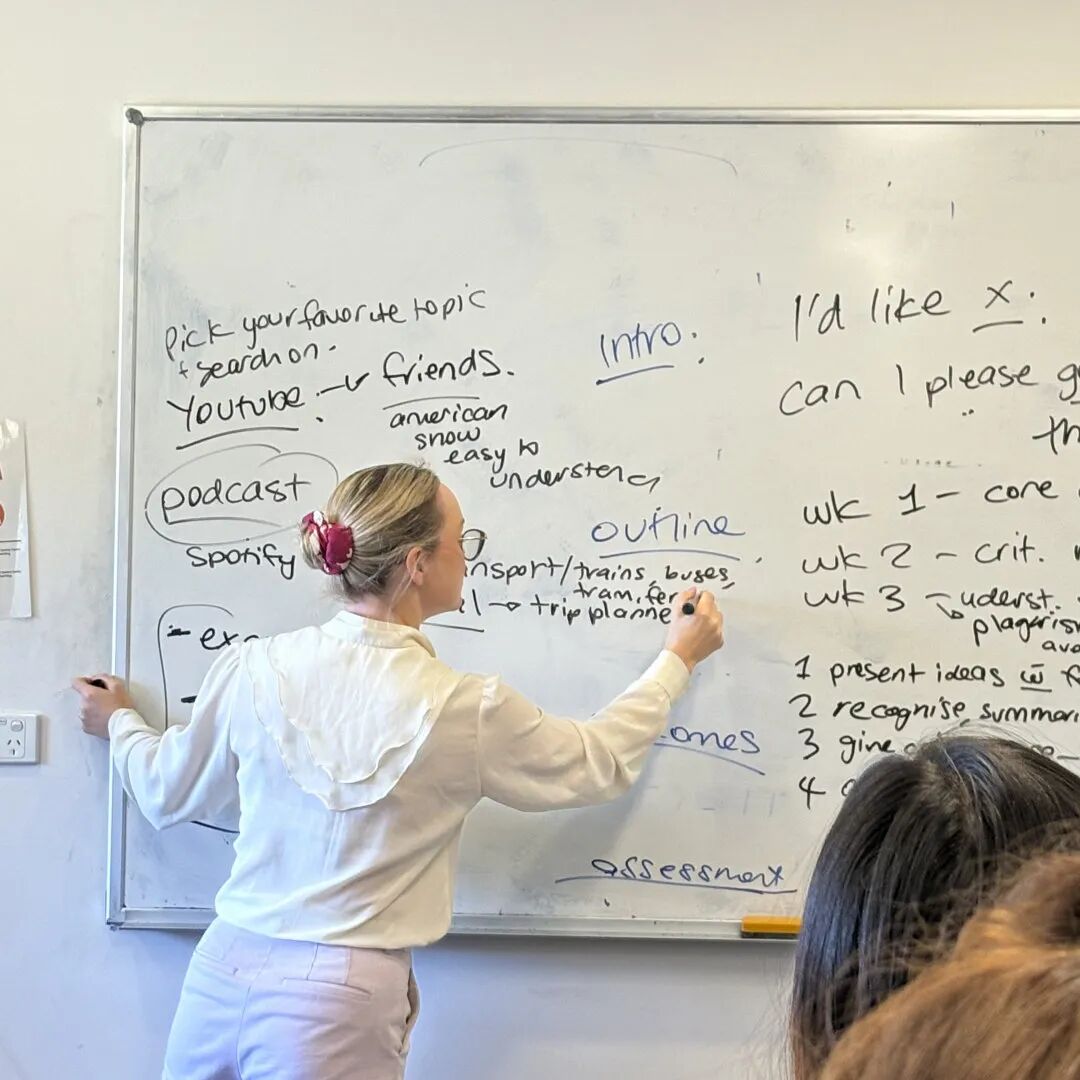 Pick your favorite topic
+ search on.
Youtube. → friends.
american
snow
easy to
understand
podcast
Spotify
nsport/trains, buses,
tram, fer
l → trip planne
- exa
Intro:
outline
omes
assessment
I'd like x.
can I please g
th
wk 1 - core
wk 2 - crit.
wk 3 - uderst.
plagarism
avo
1 present ideas w̄
2 recognise summari
3 give
4